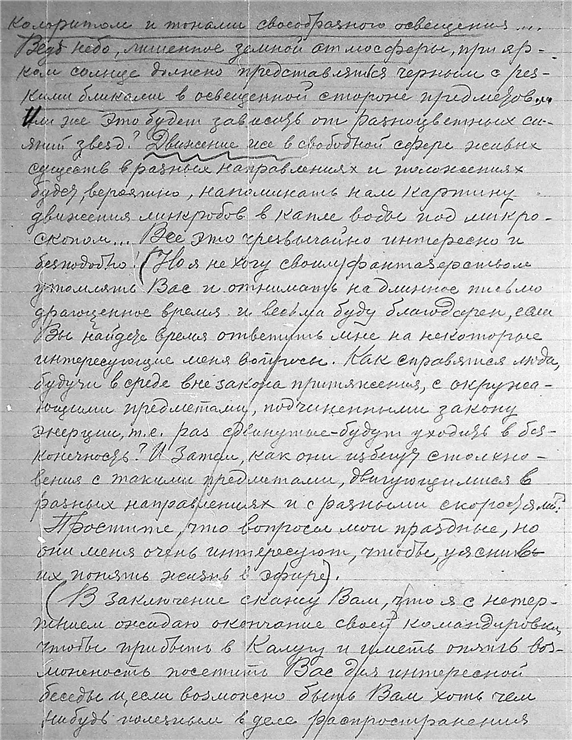 колоритом и тонами своеобразного освещения....
Ведь небо, лишенное земной атмосферы, при яр-
ком солнце должно представляться черным с рез-
кими бликами в освещенной стороне предметов...
Или же это будет зависеть от разноцветных си-
яний звезд? Движение же в свободной сфере живых
существ в разных направлениях и положениях
будет, вероятно, напоминать нам картину
движения микробов в капле воды под микро-
скопом... Все это чрезвычайно интересно и
бесподобно! (Но я не хочу своим фантазерством
утомлять Вас и отнимать на длинное письмо
драгоценное время и весьма буду благодарен, если
Вы найдете время ответить мне на некоторые
интересующие меня вопросы. Как справятся люди,
будучи в среде вне закона притяжения, с окружа-
ющими предметами, подчиненными закону
энерции, т.е. раз сдвинутые - будут уходить в бес-
конечность? И затем, как они избегнут столкно-
вения с такими предметами, двигующимися в
разных направлениях и с разными скоростями?
Простите, что вопросы мои праздные, но
они меня очень интересуют, чтобы, уяснив
их понять жизнь в эфире).
(В заключение скажу Вам, что я с нетер-
пением ожидаю окончание своей командировки,
чтобы прибыть в Калугу и иметь опять воз-
можность посетить Вас для интересной
беседы и, если возможно быть Вам хоть чем
нибудь полезным в деле распространения